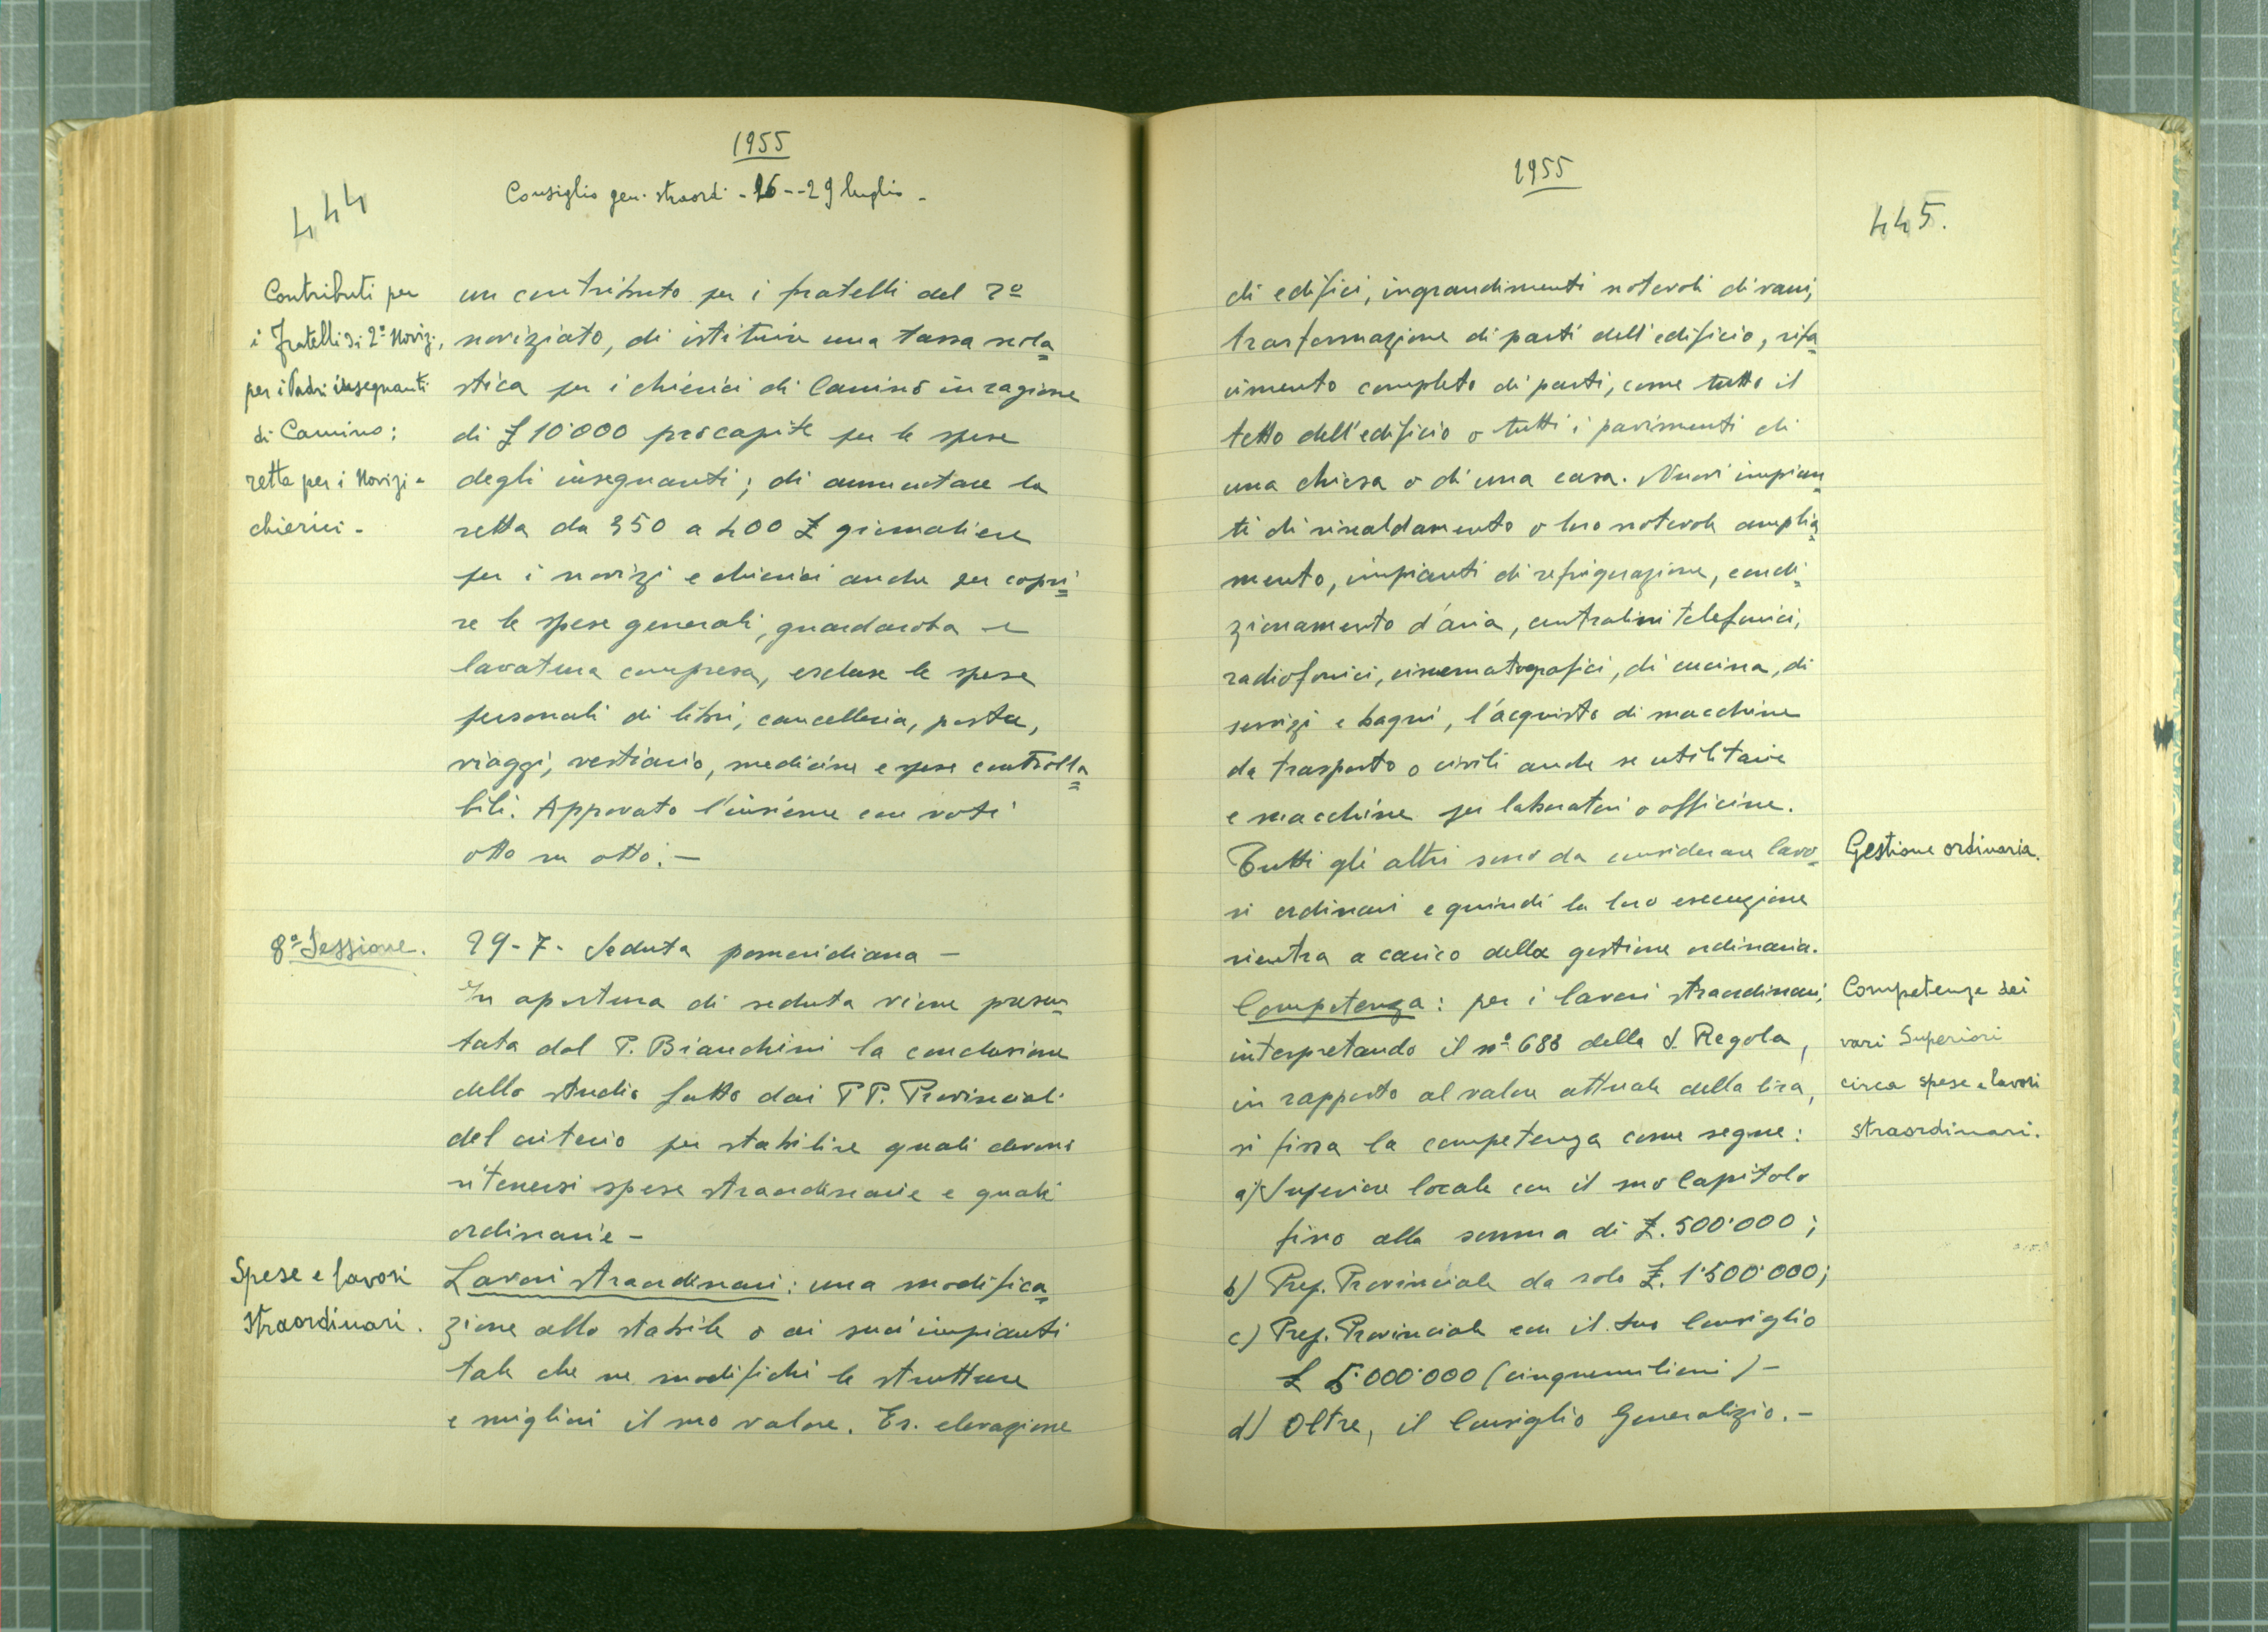 1955
Consiglio gen. straord. - 26 -- 29 luglio -
444
Contributi per
i Fratelli di 2º Noviz.,
per i Padri insegnanti
di Camino;
retta per i Novizi -
chierici -
un contributo per i fratelli del 2º
noviziato, di istituire una tassa scola=
stica per i chierici di Camino in ragione
di £ 10'000 procapite per le spese
degli insegnanti; di aumentare la
retta da 350 a 400 £ giornaliere
per i novizi e chierici anche per copri=
re le spese generali, guardaroba e
lavatura compresa, escluse le spese
personali di libri, cancelleria, posta,
viaggi, vestiario, medicine e spese controlla=
bili. Approvato l'insieme con voti
otto su otto. -
8ª Sessione.
29-7- Seduta pomeridiana -
In apertura di seduta viene presen=
tata dal P. Bianchini la conclusione
dello studio fatto dai PP. Provinciali
del criterio per stabilire quali devono
ritenersi spese straordinarie e quali
ordinarie -
Spese e lavori
straordinari.
Lavori straordinari: una modifica=
zione allo stabile o ai suoi impianti
tale che ne modifichi le strutture
e migliori il suo valore. Es. elevazione
1955
445.
di edifici, ingrandimenti notevoli di vani,
trasformazione di parti dell'edificio, rifa=
cimento completo di parti, come tutto il
tetto dell'edificio o tutti i pavimenti di
una chiesa o di una casa. Nuovi impian=
ti di riscaldamento o loro notevole amplia=
mento, impianti di refrigerazione, condi=
zionamento d'aria, centralini telefonici,
radiofonici, cinematografici, di cucina, di
servizi e bagni, l'acquisto di macchine
da trasporto o civili anche se utilitarie
e macchine per laboratori o officine.
Tutti gli altri sono da considerare lavo=
ri ordinari e quindi la loro esecuzione
rientra a carico della gestione ordinaria.
Gestione ordinaria.
Competenza: per i lavori straordinari,
interpretando il nº 688 della S. Regola,
in rapporto al valore attuale della lira,
si fissa la competenza come segue:
Competenze dei
vari Superiori
circa spese e lavori
straordinari.
a) Superiore locale con il suo Capitolo
fino alla somma di £. 500'000;
b) Prep. Provinciale da solo £. 1'500'000;
c) Prep. Provinciale con il suo Consiglio
£ 5'000'000 (cinquemilioni) -
d) Oltre, il Consiglio Generalizio. -